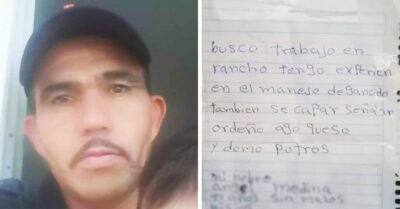 busco trabajo en
rancho tengo experien
en el manejo de ganado
tambien se capar señalr
ordeño ago queso
y domo potros
mi nobre
angel medina